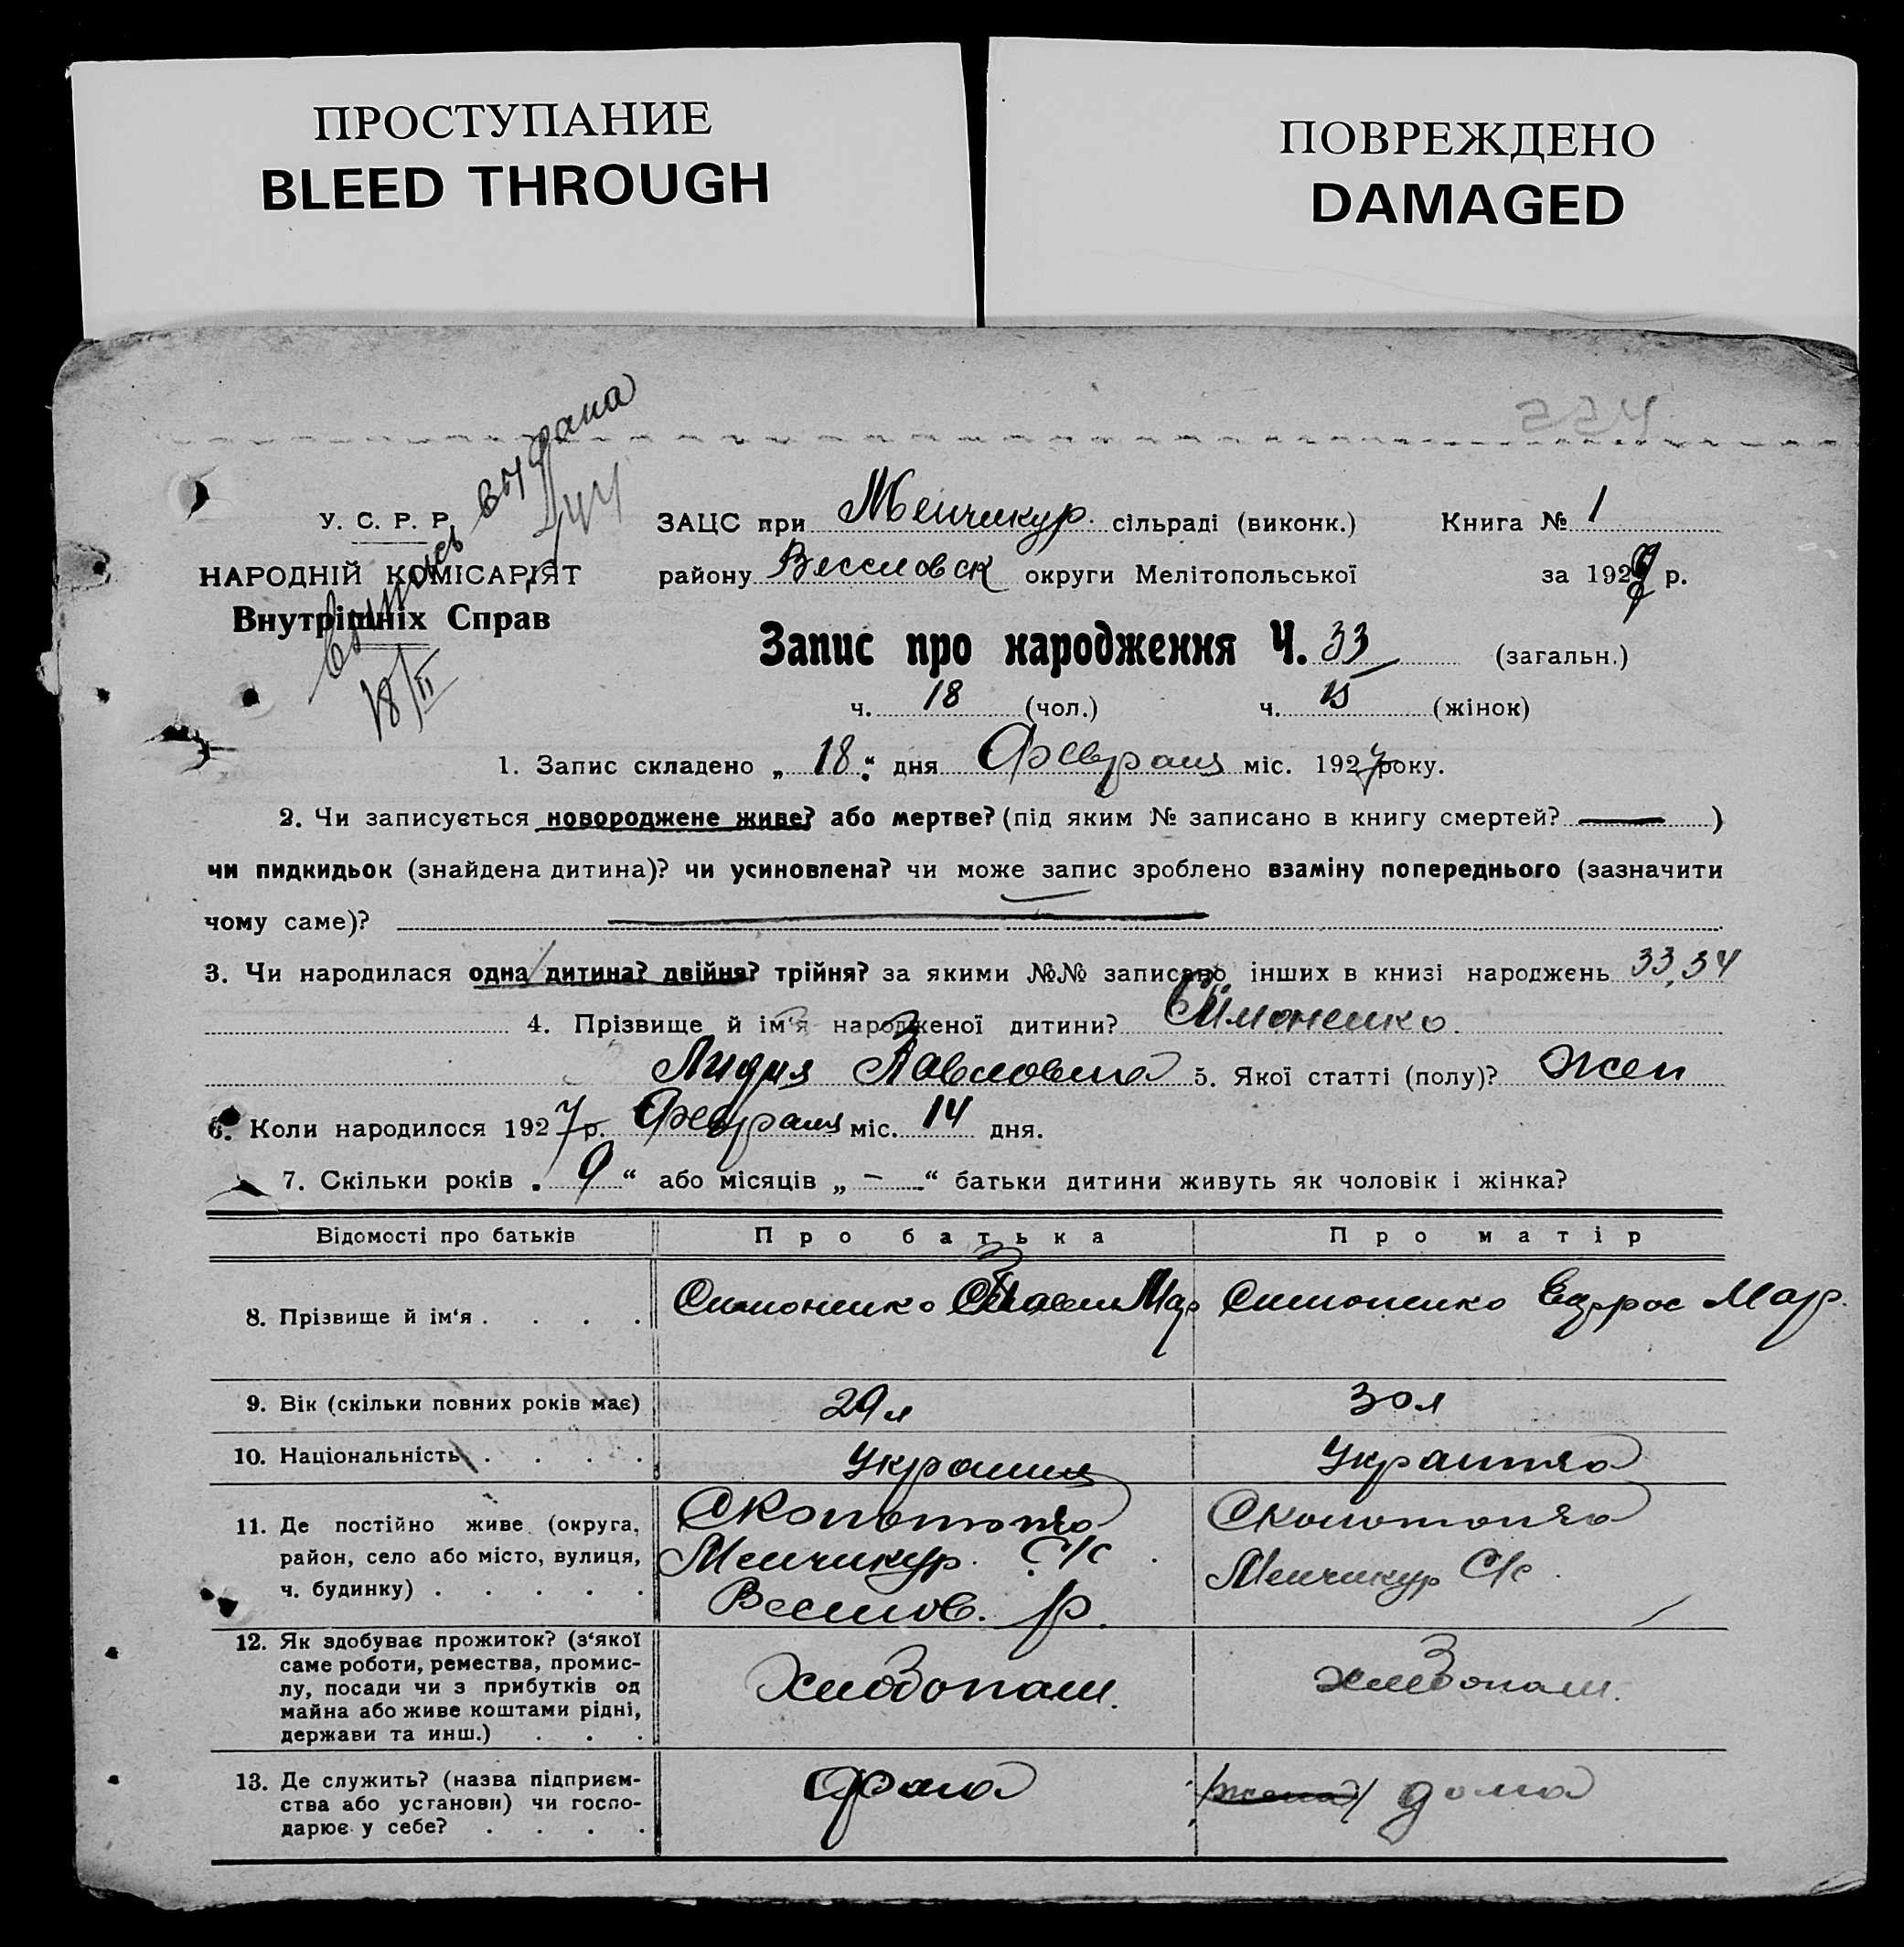 ПРОСТУПАНИЕ
BLEED THROUGH
ПОВРЕЖДЕНО
DAMAGED
224
Выпись выдана
18/II
У. С. Р. Р.
НАРОДНІЙ КОМІСАРІЯТ
Внутрішніх Справ
ЗАЦС при Менчикур. сільраді (виконк.) Книга № 1
району Веселовск округи Мелітопольської за 1927 р.
Запис про народження Ч. 33 (загальн.)
ч. 18 (чол.) ч. 15 (жінок)
1. Запис складено „ 18 “ дня Февраля міс. 1927 року.
2. Чи записується новороджене живе? або мертве? (під яким № записано в книгу смертей? — )
чи пидкидьок (знайдена дитина)? чи усиновлена? чи може запис зроблено взаміну попереднього (зазначити
чому саме)?
3. Чи народилася одна дитина? двійня? трійня? за якими №№ записано інших в книзі народжень 33,34
4. Прізвище й ім‘я народженої дитини? Симоненко.
Лидия Павловна 5. Якої статті (полу)? Жен
6. Коли народилося 1927 р. Февраля міс. 14 дня.
7. Скільки років „ 9 “ або місяців „ – “ батьки дитини живуть як чоловік і жінка?
Відомості про батьків Про батька Про матір
8. Прізвище й ім‘я . . . . Симоненко Павел Мар Симоненко Ефрос Мар.
9. Вік (скільки повних років має) 29 л 30 л
10. Національність . . . . Украинец Украинка
11. Де постійно живе (округа, район, село або місто, вулиця, ч. будинку) . . . . .
Менчикур. С/с
Весилов. р.
Менчикур С/с.
12. Як здобуває прожиток? (з‘якої
саме роботи, ремества, промис-
лу, посади чи з прибутків од
майна або живе коштами рідні,
держави та инш.) . . .
Хлебопаш.
хлебопаш.
13. Де служить? (назва підприєм-
ства або установи) чи госпо-
дарює у себе? . . . .
дома